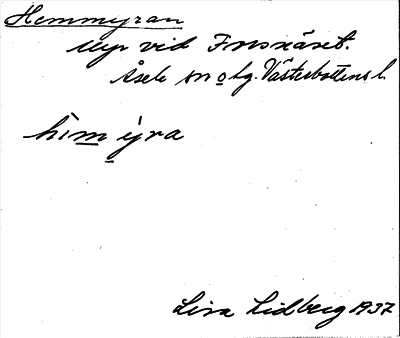 Hemmyran
Myr vid Forsnäset.
Åsele sn o hg. Västerbottens l.
hìm ýra
Lisa Lidberg 1937